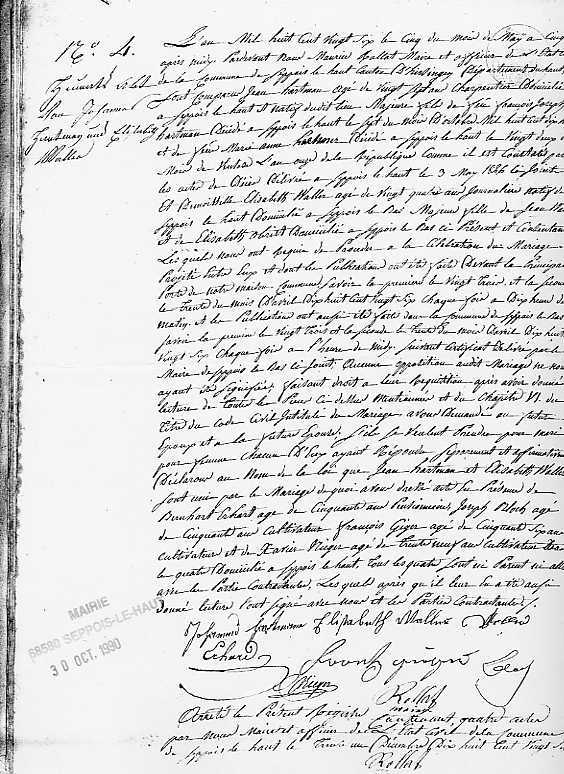 N° 4.
Elisabeth
Waller
L'an Mil huit Cent Vingt Six le Cinq du mois de May a Cinq
après midy. Pardevant Nous Maurice Rollat Maire et officier de L'Etat
de la Commune de Seppois le haut Canton D'hirsingen Département du haut
Sont Comparu Jean hartman agé de Vingt Sept ans Charpentier Domicilié
a Seppois le haut et Natif dudit lieu Majeure fils de feu françois Joseph
hartman Décédé a Seppois le haut le Sept du mois D'octobre Mil huit Cent dix
et de feue Marie anne Décédé a Seppois le haut le Vingt deux
Mois de L'an onze de la République Comme il est Constaté par
les actes de Décès Délivré a Seppois le haut le 3 May 1826 Ci Joint
Et Demoiselle Elisabeth Waller agé de Vingt quatre ans Journaliere natif de
Seppois le haut Domicilié a Seppois le Bas Majeure fille de Jean Waller
et de Elisabeth Domicilié a Seppois le Bas Ci Présent et Contentant
Lesquels nous ont requis de Procéder a la Célébration du Mariage
Projété Entre Eux et dont les Publications ont été fait Devant la principale
Porte de notre maison Commune Savoir la premiere le Vingt Trois et la seconde
le Trente du mois D'avril Dix huit Cent Vingt Six Chaque fois a Dix heures du
Matin et les Publications ont aussi été fait dans la Commune de Seppois le Bas
Savoir la premiere le Vingt Trois et la seconde le Trente du mois Avril Dix huit
Vingt Six Chaque fois a L'heure de midy. Suivant Certificat Délivré par le
Maire de Seppois le Bas Ci Joint. Aucune opposition audit Mariage ne nous
ayant été Signifié, faisant droit a leur Réquisition après avoir donné
lecture de toute les Pieces Ci dessus Mentionné et du Chapitre VI. du
titre du Code Civil Intitulé du Mariage avons Demandé au futur
Epoux et a la future Epouse, S'ils se Veulent Prendre pour mari
pour femme Chacun D'Eux ayant Répondu séparément et affirmativement
Déclarons au Nom de la loi que Jean hartman et Elisabeth Waller
sont unie par le Mariage de quoi avons dressé acte En Présence de
Bernhart Echart agé de Cinquante ans Joseph Bloch agé
de Cinquante ans Cultivateur françois Giger agé de Cinquante Six ans
Cultivateur et de Xavier Niger agé de Trente neuf ans Cultivateur
le quatre Domicilié a Seppois le haut, Tous les quatre Sont ni Parent ni allié
avec les Parties Contractante, Lesquels après qu'il leur En a été aussi
donné lecture l'ont signé avec nous et les Parties Contractantes.
Elisabetha Waller
Echard
Rollat
maire
MAIRIE
68580 SEPPOIS-LE-HAUT
30 OCT. 1990
Arrêté le Présent Régistre Contenant quatre actes
par nous Maire et officier de L'Etat Civil de la Commune
de Seppois le haut le Trente un Décembre Dix huit Cent Vingt Six
Rollat